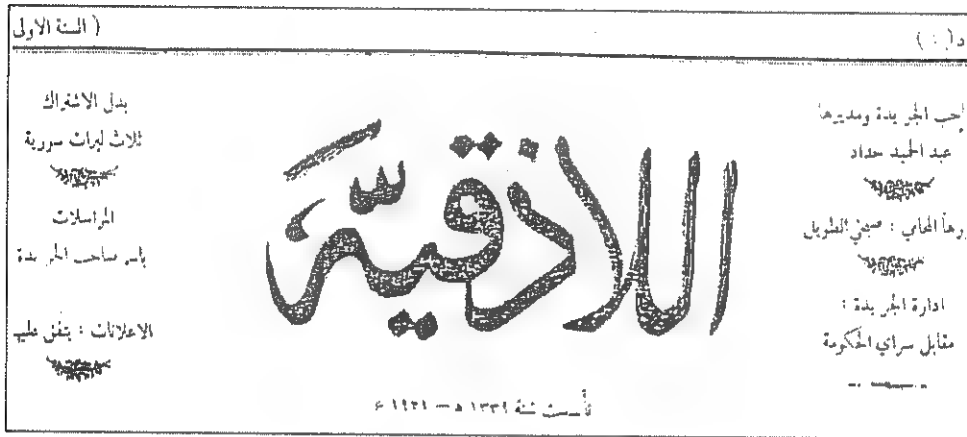 ( السنة الاولى
احب الجريدة ومديرها
عبد الحميد حداد
ورها المحامي : صبحي الطويل
ادارة الجريدة :
مقابل سراي الحكومة
اللاذقيّة
تأسست سنة ١٣٣٩ هـ — ١٩٢١ م
بدل الاشتراك
ثلاث ليرات سورية
المراسلات
باسم صاحب الجريدة
الاعلانات : يتفق عليه